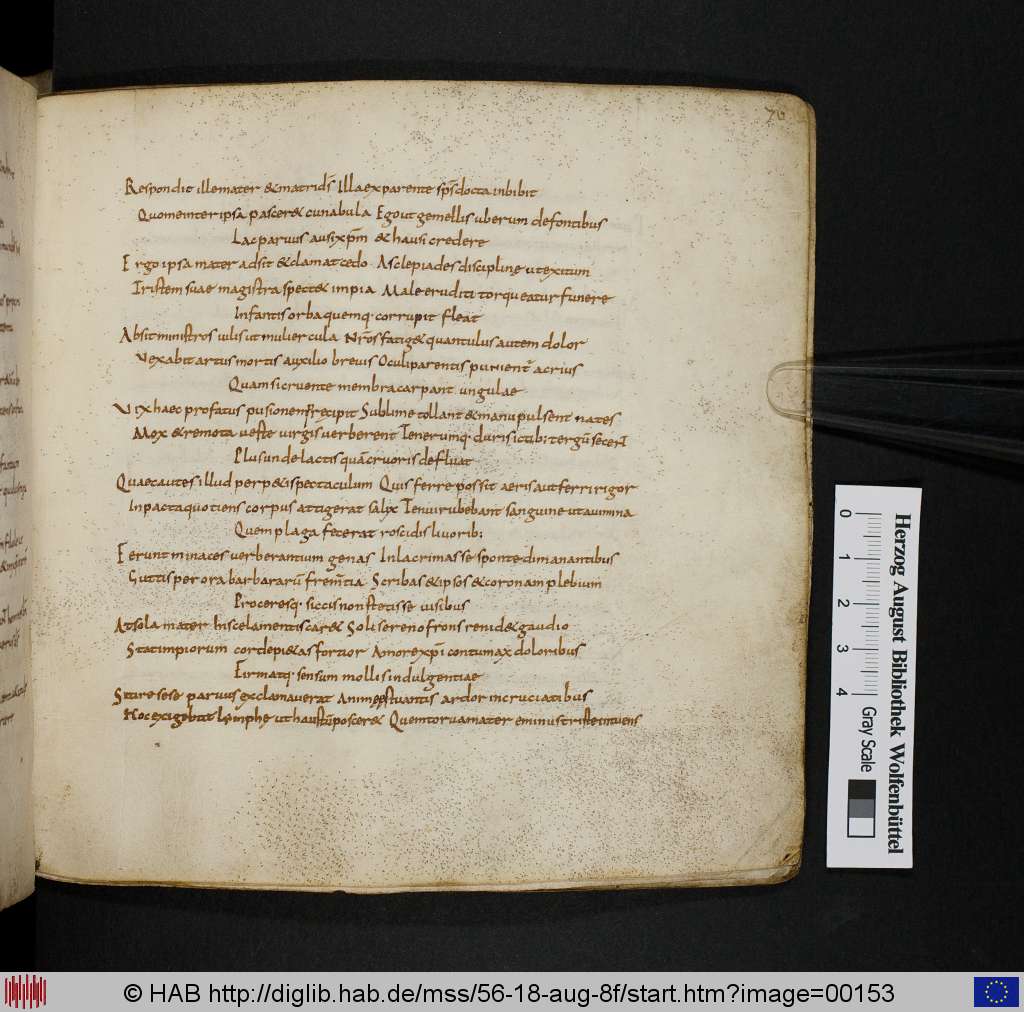 70
Respondit illemater &matrid̄s Illaexparente sp̄s docta inbibit
Quomeinteripsa pascer& cunabula Egout gemellis uberum defontibus
Lacparuus ausi xp̄m & hausi credere
Ergo ipsa mater adsit &clamat cedo Asclepiades discipline utexitum
Tristem suae magistra spect& impia Male eruditi torqueatur funere
Infantis orba quemq· corrupit fleat
Absit ministros uilis ut muliercula Nr̄os fatig& quantulus autem dolor
Uexabit artus mortis auxilio breuis Oculi parentis punient᷑ acrius
Quam si cruente membra carpant ungulae
Uix haec profatus pusionem precipit Sublime tollant &manu pulsent nates
Mox &remota ueste uirgis uerberent Tenerumq· duris ictib; tergū secent
Plus unde lactis quā cruoris defluat
Quae cautes illud perp&i spectaculum Quis ferre possit aeris aut ferri rigor
Inpacta quotiens corpus attigerat salix Tenui rubebant sanguine ut auimna
Quem plaga fecerat roscidis liuorib;
Ferunt minaces uerberantium genas Inlacrimasse sponte dimanantibus
Guttis per ora barbararū frem̄tia Scribas &ipsos &coronam plebium
Proceresq· siccis non stetisse uisibus
At sola mater hiscelamentis car& Soli sereno frons renid& gaudio
Stat impiorum corde pi&as fortior Amorexp̄i contumax doloribus
Firmatq· sensum mollis indulgentiae
Sitire sese paruus exclamauerat Anime estuantis ardor in cruciatibus
Hoc exigebat lēnphe ut haustū poscer& Quem torua mater eminus triste intuens
Herzog August Bibliothek Wolfenbüttel
0 1 2 3 4 Gray Scale
© HAB http://diglib.hab.de/mss/56-18-aug-8f/start.htm?image=00153